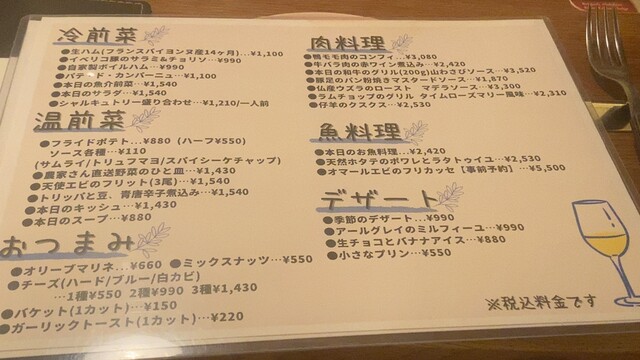 冷前菜
●生ハム(フランスバイヨンヌ産14ヶ月)...¥1,100
●イベリコ豚のサラミ&チョリソ…¥990
●自家製ボイルハム…¥990
●パテ・ド・カンパーニュ…¥1,100
●本日の魚介前菜…¥1,540
●本日のサラダ…¥1,540
●シャルキュトリー盛り合わせ…¥1,210/一人前
温前菜
●フライドポテト...¥880 (ハーフ¥550)
ソース各種…¥110
(サムライ/トリュフマヨ/スパイシーケチャップ)
●農家さん直送野菜のひと皿…¥1,430
●天使エビのフリット(3尾)…¥1,540
●トリッパと豆、青唐辛子煮込み…¥1,540
●本日のキッシュ…¥1,430
●本日のスープ…¥880
おつまみ
●オリーブマリネ...¥660 ●ミックスナッツ…¥550
●チーズ(ハード/ブルー/白カビ)
…1種¥550 2種¥990 3種¥1,430
●バケット(1カット)…¥150
●ガーリックトースト(1カット)…¥220
肉料理
●鴨モモ肉のコンフィ...¥3,080
●牛バラ肉の赤ワイン煮込み…¥2,420
●本日の和牛のグリル(200g)山わさびソース…¥3,520
●豚足のパン粉焼きマスタードソース…¥1,870
●仏産ウズラのロースト マデラソース…¥3,300
●ラムチョップのグリル タイムローズマリー風味…¥2,310
●仔羊のクスクス…¥2,530
魚料理
●本日のお魚料理...¥2,420
●天然ホタテのポワレとラタトゥイユ…¥2,530
●オマールエビのフリカッセ【事前予約】…¥5,500
デザート
●季節のデザート...¥990
●アールグレイのミルフィーユ…¥990
●生チョコとバナナアイス…¥880
●小さなプリン…¥550
※税込料金です